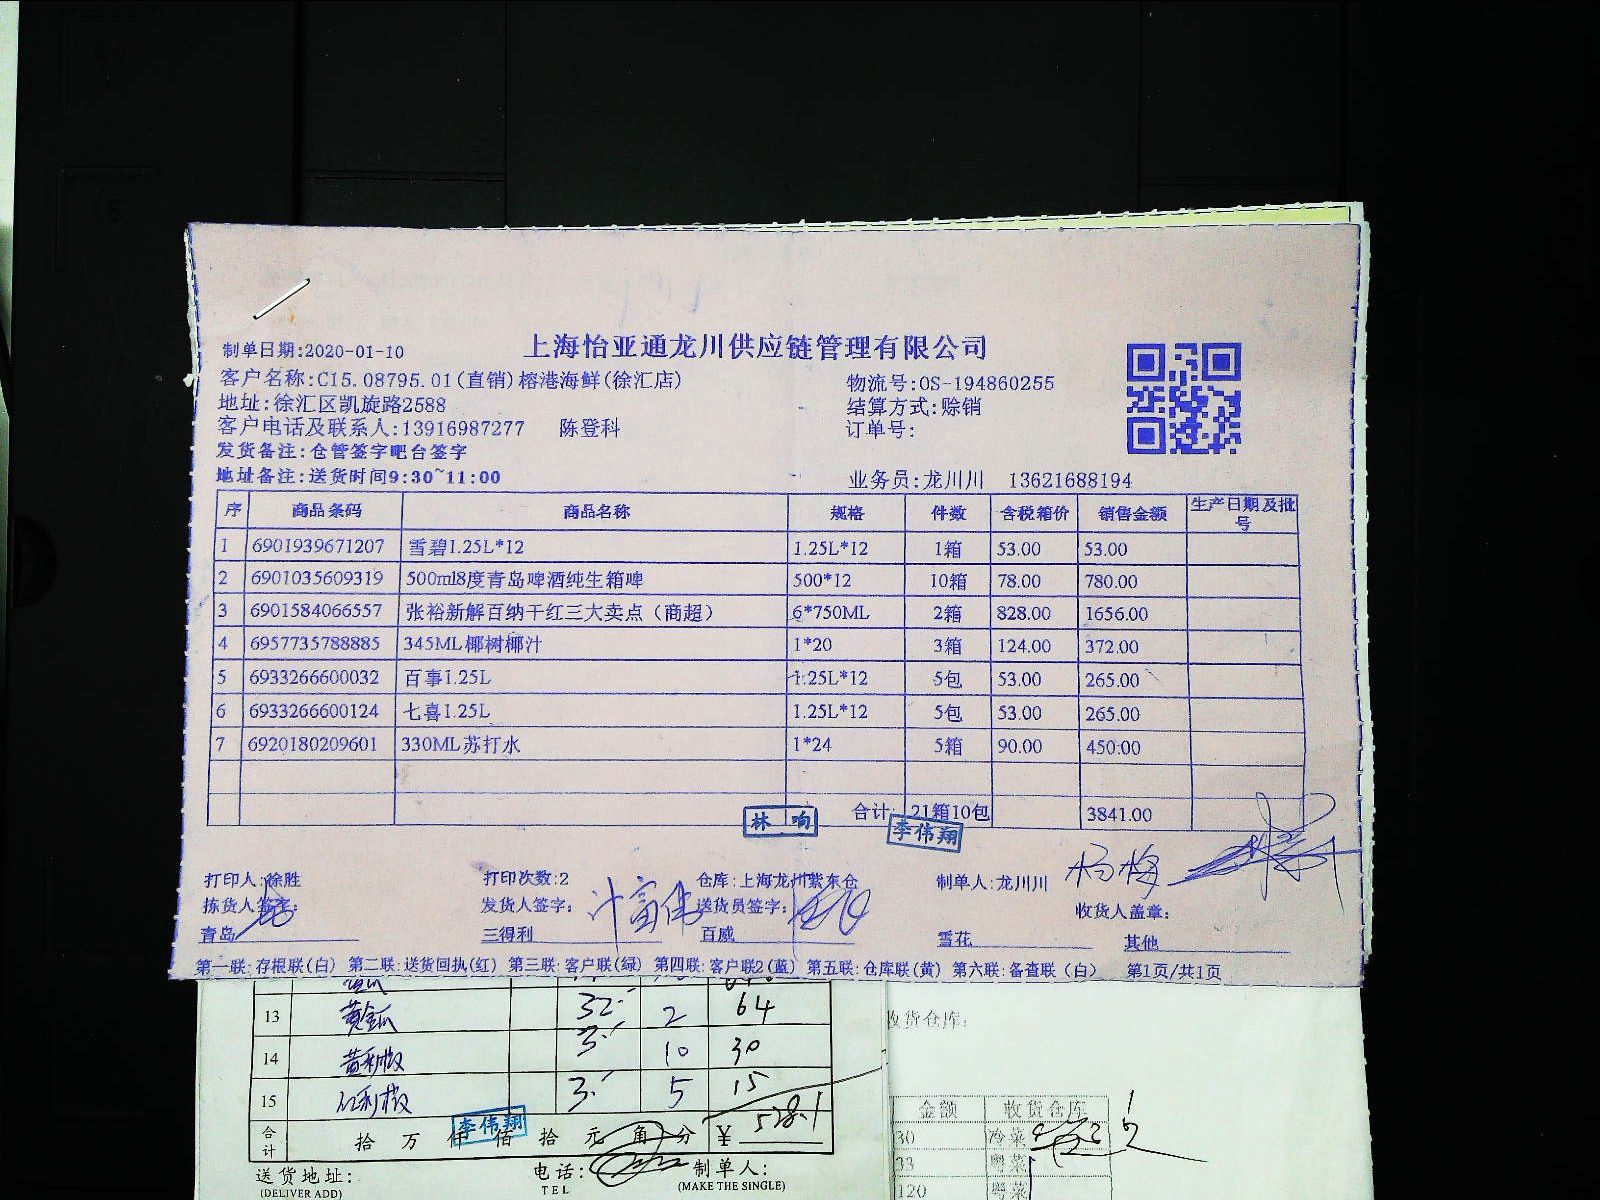 上海怡亚通龙川供应链管理有限公司
制单日期:2020-01-10
客户名称:C15.08795.01(直销)榕港海鲜(徐汇店) 物流号:OS-194860255
地址:徐汇区凯旋路2588 结算方式:赊销
客户电话及联系人:13916987277 陈登科 订单号:
发货备注:仓管签字吧台签字
地址备注:送货时间9:30~11:00 业务员:龙川川 13621688194
序 商品条码 商品名称 规格 件数 含税箱价 销售金额 生产日期及批号
1 6901939671207 雪碧1.25L*12 1.25L*12 1箱 53.00 53.00
2 6901035609319 500ml8度青岛啤酒纯生箱啤 500*12 10箱 78.00 780.00
3 6901584066557 张裕新解百纳干红三大卖点（商超） 6*750ML 2箱 828.00 1656.00
4 6957735788885 345ML椰树椰汁 1*20 3箱 124.00 372.00
5 6933266600032 百事1.25L 1.25L*12 5包 53.00 265.00
6 6933266600124 七喜1.25L 1.25L*12 5包 53.00 265.00
7 6920180209601 330ML苏打水 1*24 5箱 90.00 450.00
合计: 21箱10包 3841.00
林响 李伟翔
打印人:徐胜 打印次数:2 仓库:上海龙川紫东仓 制单人:龙川川 杨梅
拣货人签字: 发货人签字: 送货员签字: 收货人盖章:
青岛 三得利 百威 雪花 其他
第一联:存根联(白) 第二联:送货回执(红) 第三联:客户联(绿) 第四联:客户联2(蓝) 第五联:仓库联(黄) 第六联:备查联（白） 第1页/共1页
13 黄金瓜 32. 2 64
14 3. 10 30
15 3. 5 15
合计 拾 万 仟 佰 拾 元 角 分 ¥ 528.1
李伟翔
送货地址: 电话: 制单人:
(DELIVER ADD) TEL (MAKE THE SINGLE)
收货仓库:
金额 收货仓库
30 冷菜
33 粤菜
120 粤菜